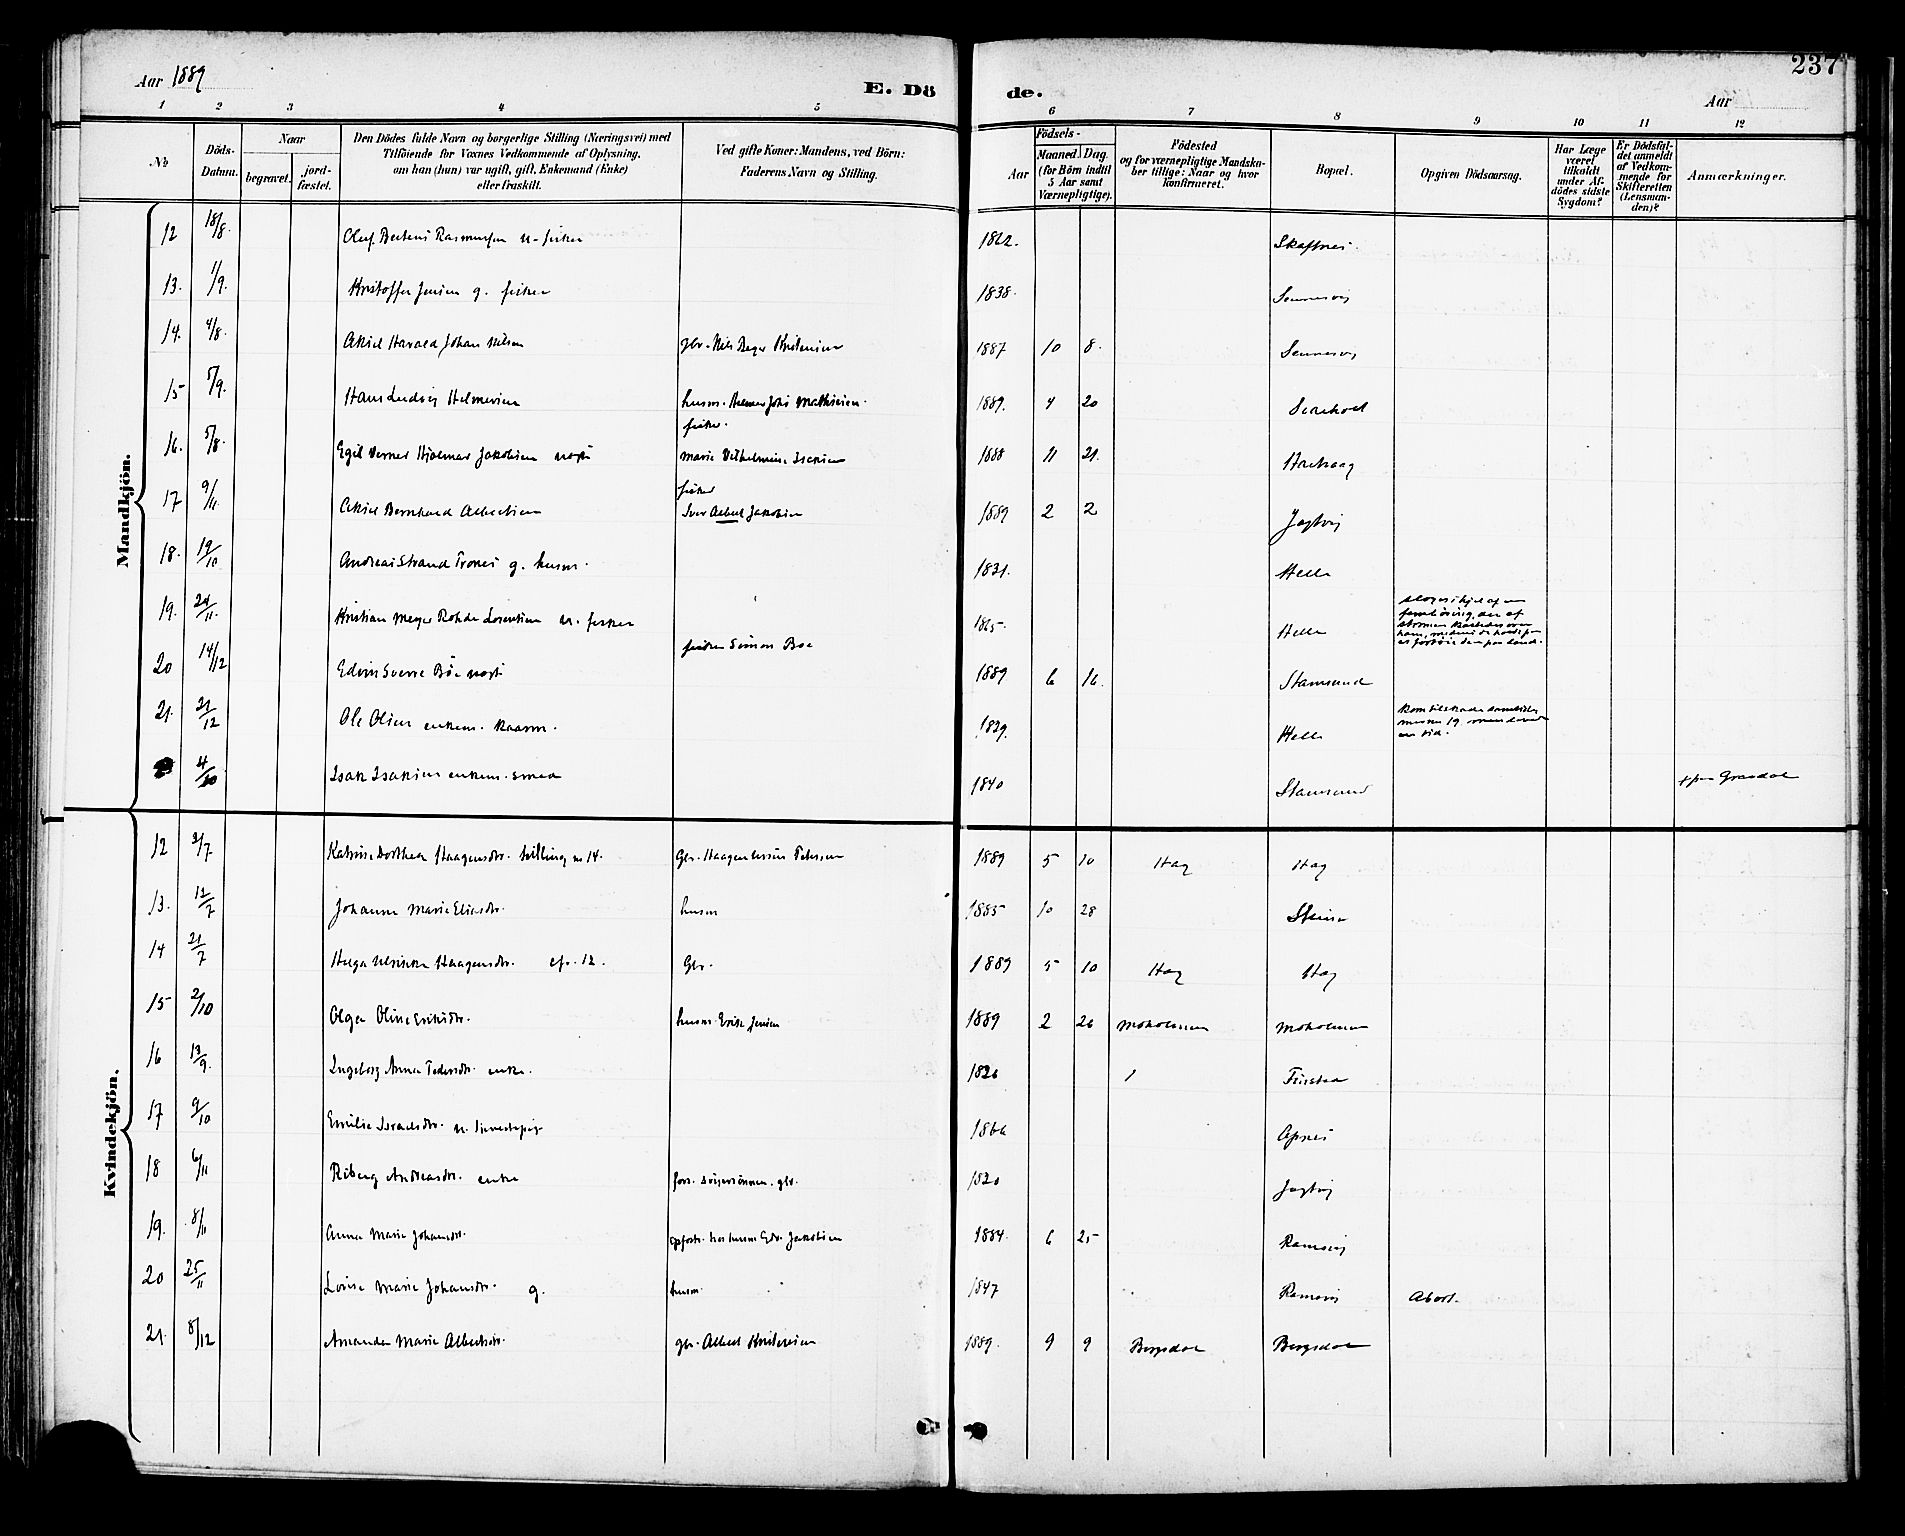 Aar 1889
E. Dö
de.
237
Aar
1 2 3 4 5 6 7 8 9 10 11 12
No
Döds-
Datum.
Naar
begravet.
jord-
fæstet.
Den Dödes fulde Navn og borgerlige Stilling (Næringsvei) med
Tilföiende for Voxnes Vedkommende af Oplysning,
om han (hun) var ugift, gift, Enkemand (Enke)
eller fraskilt.
Ved gifte Koner: Mandens, ved Börn:
Faderens Navn og Stilling.
Födsels-
Aar
Maaned. Dag.
(for Börn indtil
5 Aar samt
Værnepligtige).
Födested
og for værnepligtige Mandska-
ber tillige: Naar og hvor
konfirmeret.
Bopæl.
Opgiven Dödsaarsag.
Har Læge
været
tilkaldt
under Af-
dödes sidste
Sygdom?
Er Dödsfal-
det anmeldt
af Vedkom-
mende for
Skifteretten
(Lensman-
den)?
Anmærkninger.
Mandkjön.
12 18/8. Oluf Berteus Rasmussen u. fisker 1862. Skafnes
13. 1/9. Kristoffer Jensen g. fisker 1838. Sennesvig
14. 4/8. Aksel Harald Johan Nilsen gbr. Nils Kristensen 1887 10 8. Sennesvig
15 5/9. Hans Ludvig Helmersen husm. Helmer Johs Mathisen. 1889. 4 20
16. 5/8. Egil Verner Hjalmar Jakobsen uægte fisker. Marie Vilhelmine Isaksen 1888 11 21.
17 9/11. Aksel Bernhard Albertsen fisker Iver Albert Jakobsen 1889 2 2 Jagtvig
18. 19/10 Andreas Strand Trones g. husm. 1831. Helle
19. 24/11. Kristian Meyer Rohde Lorentsen u. fisker 1865. Helle
20 14/12 Edvin Sverre Böe uægte fisker Simon Böe 1889 6 16. Stamsund
21. 21/12 Ole Olsen enkem. kaarm. 1829. Helle
4/10 Isak Isaksen enkem. smed 1840 Stamsund
Kvindekjön.
12 2/7 Katrine Dorthea Haagensdtr. tvilling m 14. Gbr. Haagen Petersen 1889 5 10 Hag Hag
13. 12/7 Johanna Marie Eliasdtr. husm 1885 10 28 Steine
14 21/7 Helga Ulrikke Haagensdtr. cfr. 12. Gbr. 1889 5 10 Hag Hag
15 2/10 Olga Oline Eriksdtr. husm. Erik Jensen 1889 2 26 Moholmen Moholmen
16 13/9. Ingeborg Anna Pedersdtr. enke. 1826
17 9/10 Emilie Israelsdtr. u. tjenestepige 1866 Apnes
18 6/11 Riberg Andreasdtr. enke fors. svigersønnen. gbr. 1820 Jagtvig
19. 8/11 Anna Marie Johansdtr. opfostr. hos husm Edv. Jakobsen 1884. 6 25 Ramsvig
20 25/11 Lovise Marie Johansdtr. g. husm. 1847 Ramsvig Abort.
21. 8/12 Amanda Marie Albertsdtr. gbr. Albert Kristensen 1889. 9 9 Bergsdal Bergsdal